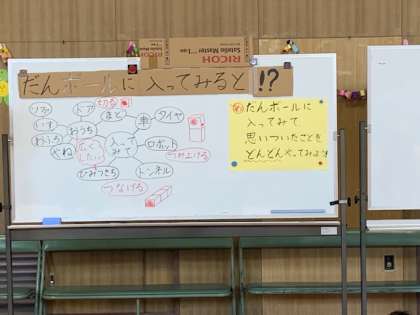 RICOH
Satelio Master
だんボールに入ってみると!?
切る
ドア
まど
車
タイヤ
いす
おうち
やね
広く
したい
入って
みて
ロボット
つみ上げる
ひみつきち
トンネル
つなげる
め だんボールに
入ってみて
思いついたことを
どんどんやってみよう!